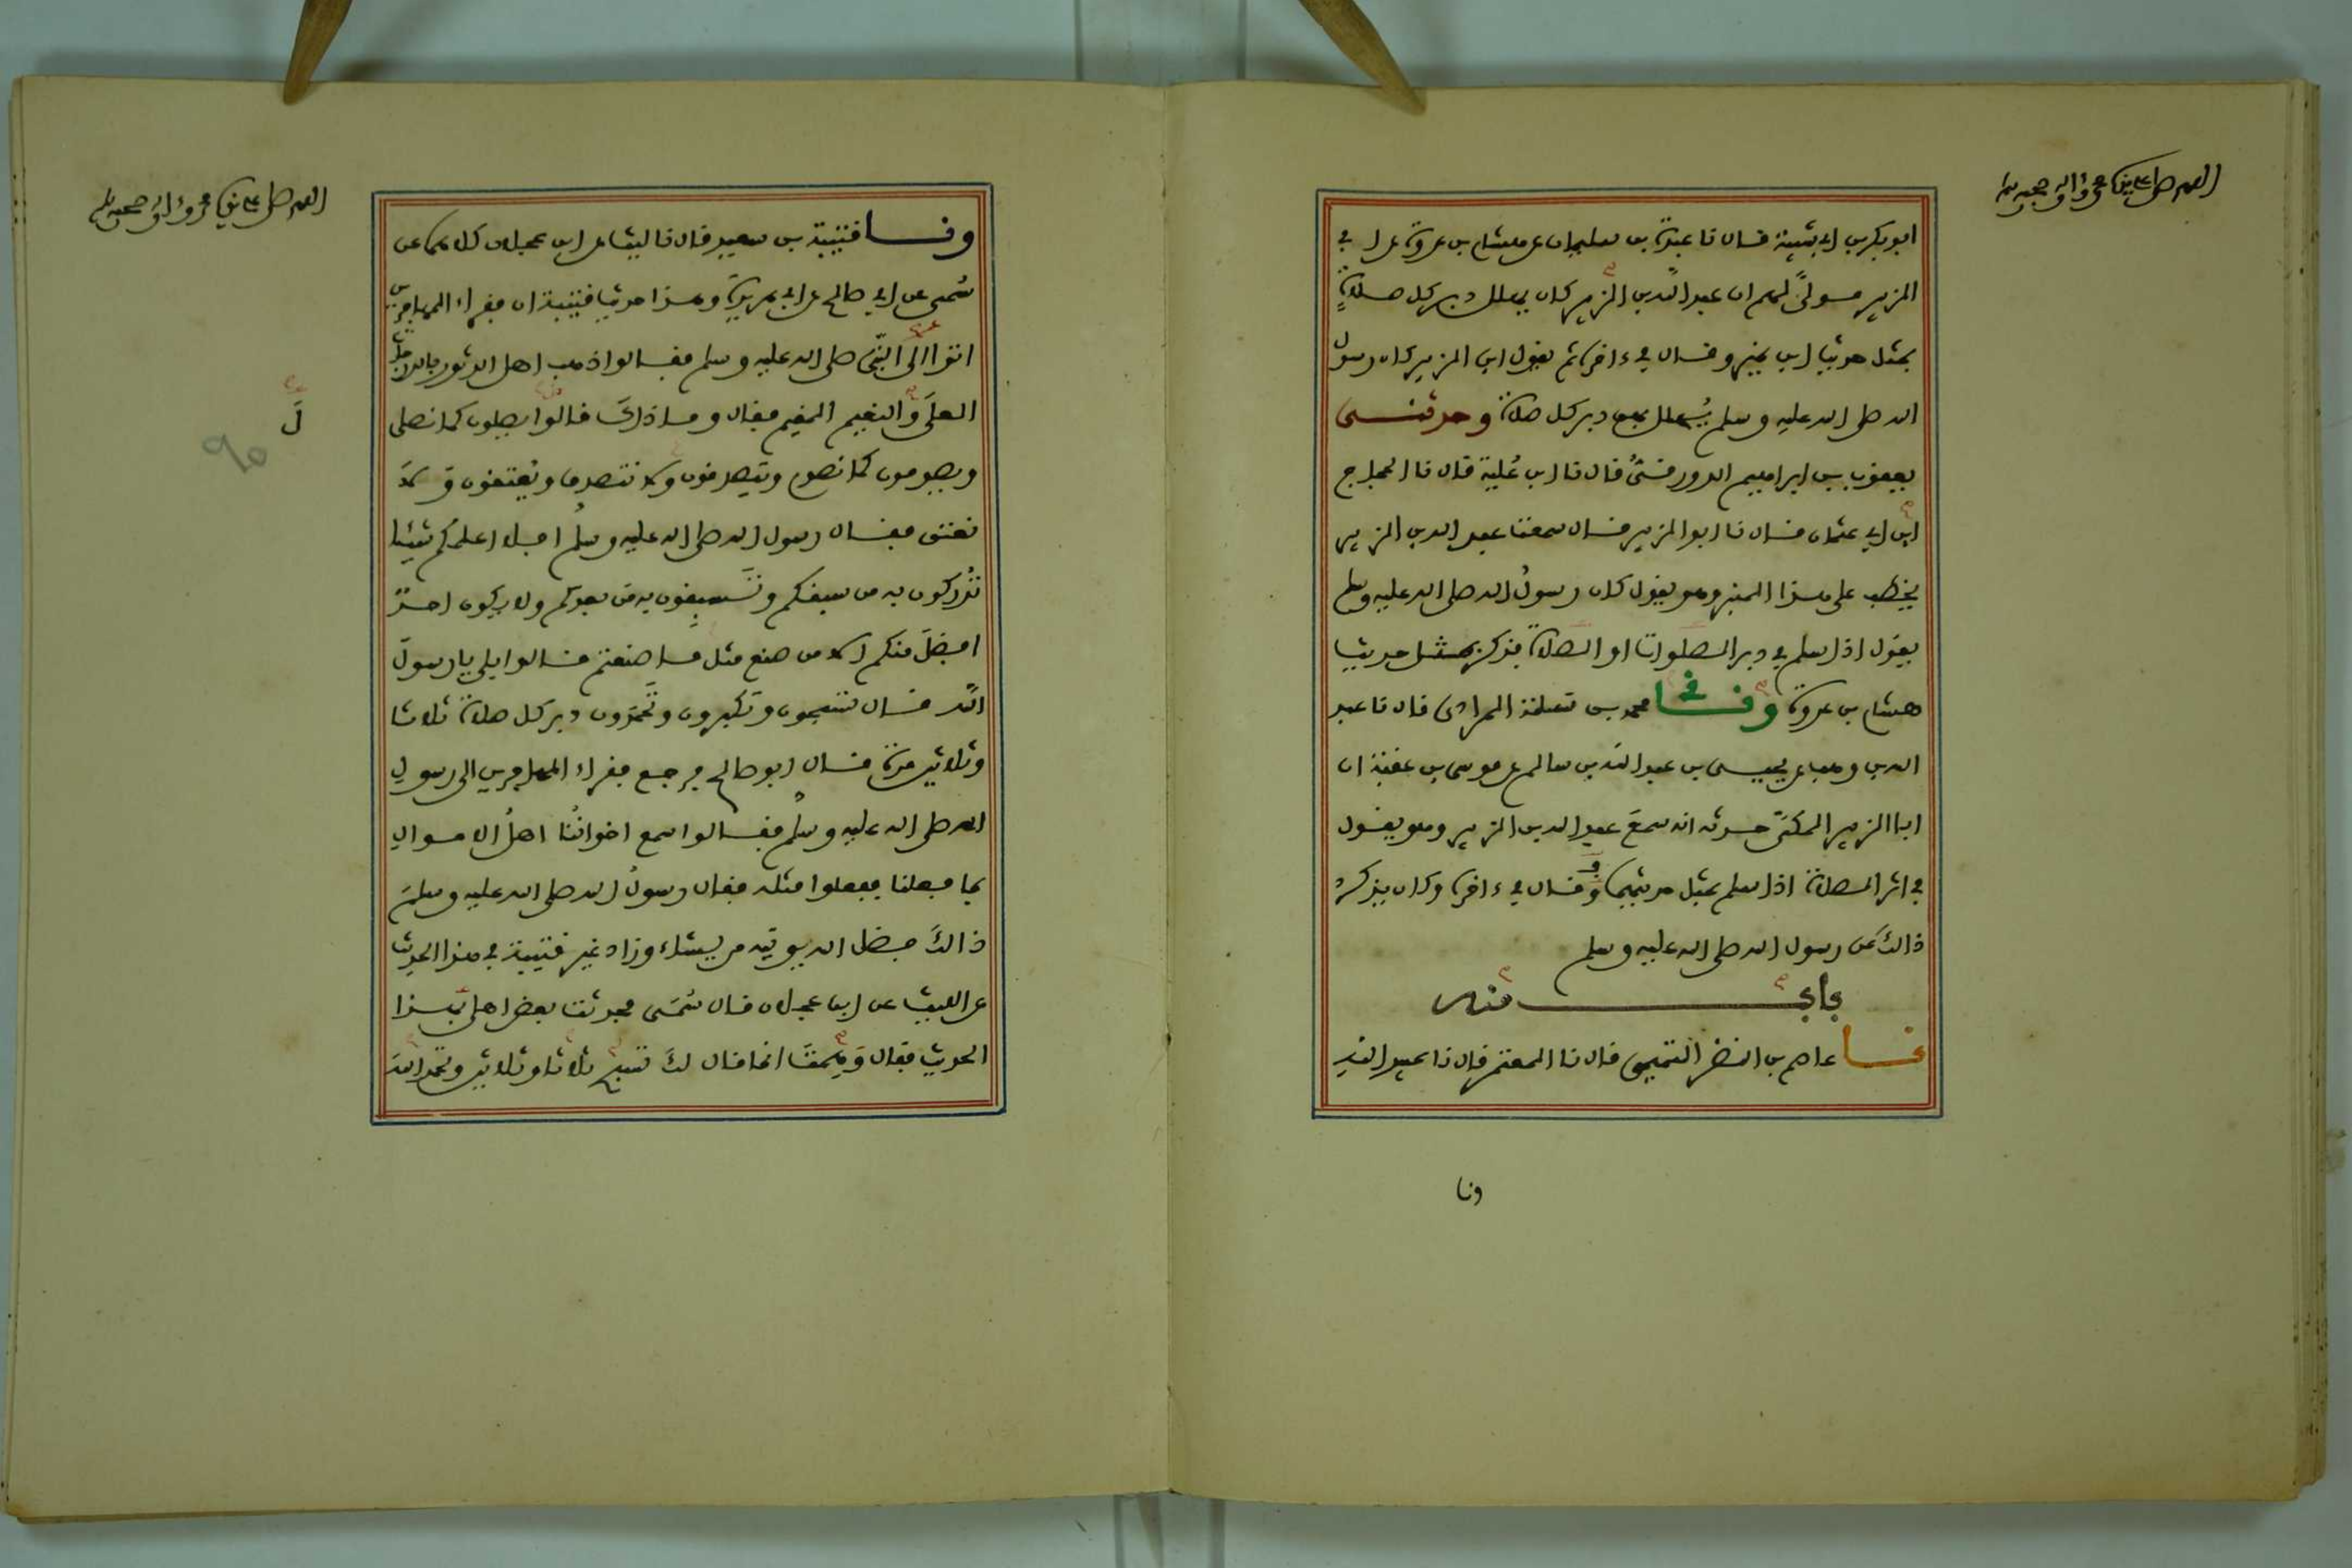 اللهم صل على نبيك محمد وءاله وصحبه وسلم
ابو بكر بن ابي شيبة قال نا عبدة بن سليمان عن هشام بن عروة عن ابي
الزبير مولى لهم ان عبد الله بن الزبير كان يهلل دبر كل صلاة
بمثل حديث ابن نمير وقال في ءاخره ثم يقول ابن الزبير كان رسول
الله صلى الله عليه وسلم يهلل بهن دبر كل صلاة وحدثنى
يعقوب بن ابراهيم الدورقيُّ قال نا ابن عُلية قال نا الحجاج
ابن ابي عثمان قال نا ابو الزبير قال سمعت عبد الله بن الزبير
يخطب على هذا المنبر وهو يقول كان رسولُ الله صلى الله عليه وسلم
يقول اذا سلم في دبر الصلوات او الصلاة فذكر بمثل حديث
هشام بن عروة ونا محمد بن سلمة المرادى قال نا عبد
الله بن وهب عن يحيى بن عبد الله بن سالم عن موسى بن عقبة ان
ابا الزبير المكىّ حدثه انه سمعَ عبد الله بن الزبير وهو يقول
في اثر الصلاة اذا سلم بمثل حديثهما وقال في ءاخره وكان يذكر
ذالكَ عن رسول الله صلى الله عليه وسلم
باب منه
نا عاصم بن النضر التيمي قال نا المعتمر قال نا عبيد الله
ونا
اللهم صل على نبيك محمد وءاله وصحبه وسلم
ونا قتيبة بن سعيد قال نا ليث عن ابن عجلان كلاهما عن
سُمى عن ابي صالح عن ابي هريرة وهذا حديث قتيبة ان فقراء المهاجرين
اتوا الى النبي صلى الله عليه وسلم فقالوا ذهب اهل الدثور بالدرجات
العلَى والنعيم المقيم فقال وما ذاكَ قالوا يصلون كما نصلى
ويصومون كما نصوم ويتصدقون ولا نتصدق ويُعتقون ولا
نعتق فقال رسول الله صلى الله عليه وسلم افلا اعلمُكم شيئا
تُدركون به من سبقكم وتَسبِقون به من بعدكم ولا يكون احدٌ
افضلَ منكم الا من صنع مثل ما صنعتم قالوا بلى يا رسولَ
الله قال تسبحون وتكبرون وتَحمدون دبر كل صلاة ثلاثا
وثلاثين مرة قال ابو صالح فرجع فقراء المهاجرين الى رسول
الله صلى الله عليه وسلم فقالوا سمع اخوانُنا اهلُ الاموال
بما فعلنا ففعلوا مثله فقال رسولُ الله صلى الله عليه وسلمَ
ذالكَ فضل الله يوتيه من يشاء وزاد غير قتيبة في هذا الحديث
عن الليث عن ابن عجلان قال سُمَى فحدثت بعض اهلى بهذا
الحديث فقال وَهِمتَ انما قال لكَ تسبح ثلاثا وثلاثين وتحمد اللهَ
لَ